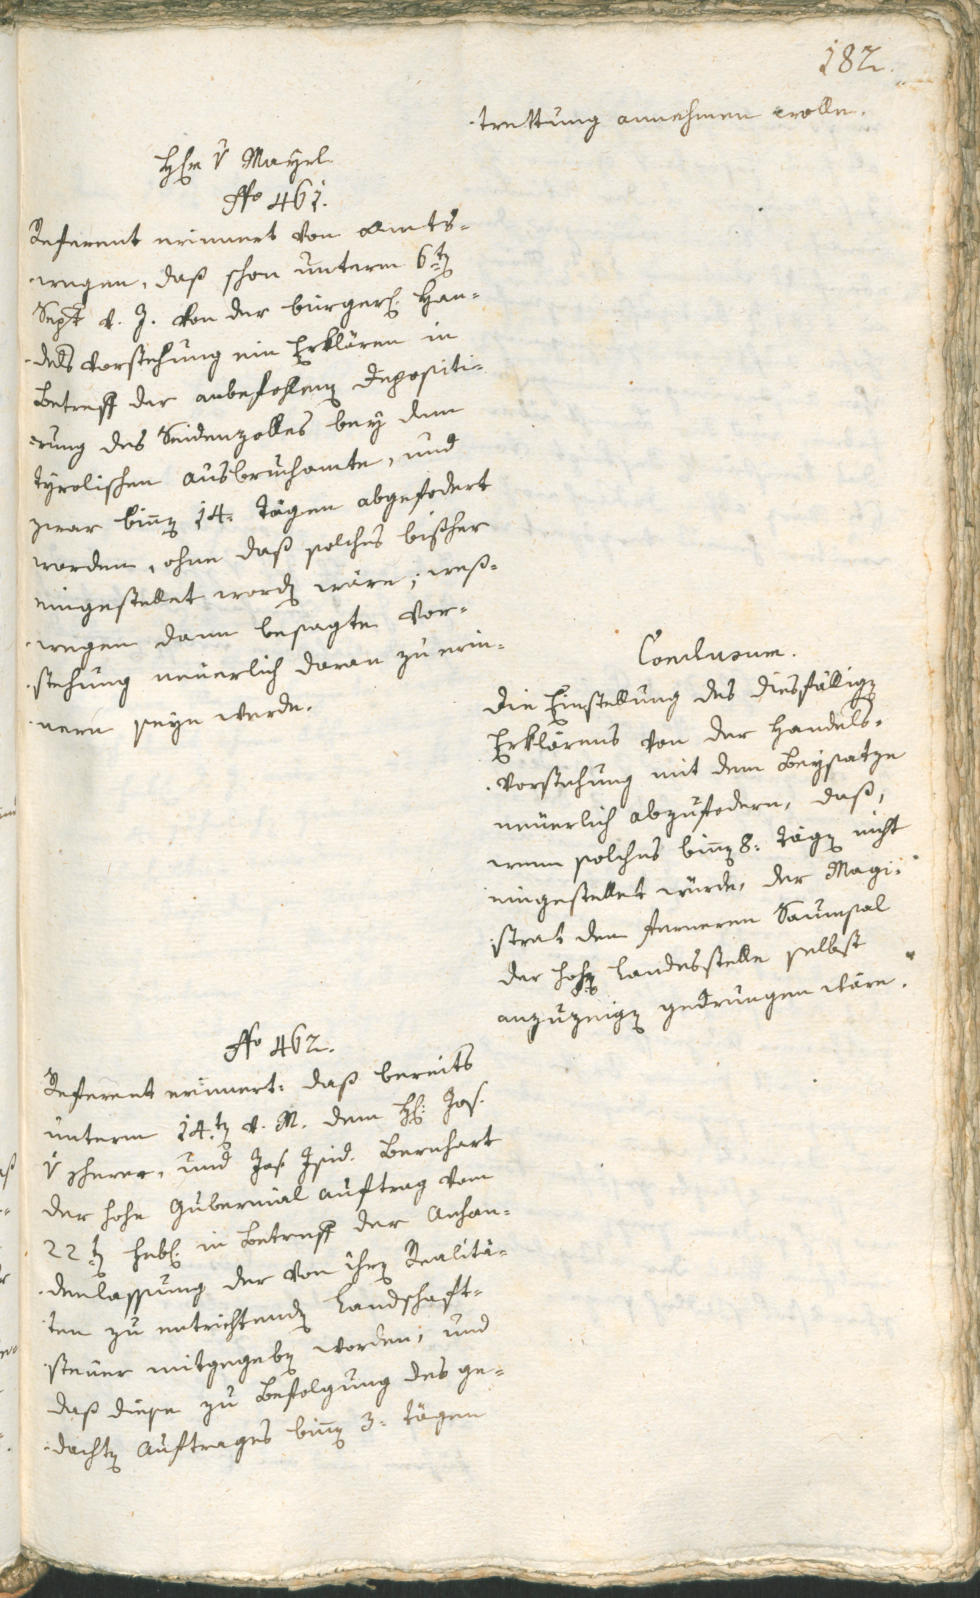 182.
trettung annehmen wolle.
H: v Mayrl
No 461.
Referent erinnert von Amts-
wegen, daß schon unterm 6t
Sept v. J. von der bürgerl: Han-
delsvorstehung ein Erklären in
Betreff der anbefohlen Depositi-
rung des Seidenzolles bey dem
tyrolischen Ausbruchamte, und
zwar binn 14: tägen abgefodert
worden, ohne daß solches bißher
eingestellet word wäre; weß-
wegen dann besagte Vor-
stehung neüerlich daran zu erin-
nern seyn werde.
Conclusum.
Die Einstellung des diesfällig
Erklärens von der Handels-
vorstehung mit dem Beysatze
neüerlich abzufodern, daß,
wenn solches binn 8: täg nicht
eingestellet würde, der Magi-
strat den ferneren Saumsal
der hoh Landesstelle selbst
anzuzeig gedrungen wäre.
No 462.
Referent erinnert: daß bereits
unterm 14t v. M. dem H: Jos.
v und Jos Isid. Bernhart
der hohe Gubernial Auftrag vom
22t in Betreff der Anhan-
denlassung der von ihr Realitä-
ten zu entrichtend Landschaft-
steuer mitgegeb worden; und
daß diese zu Befolgung des ge-
dacht Auftrages binn 3: tägen